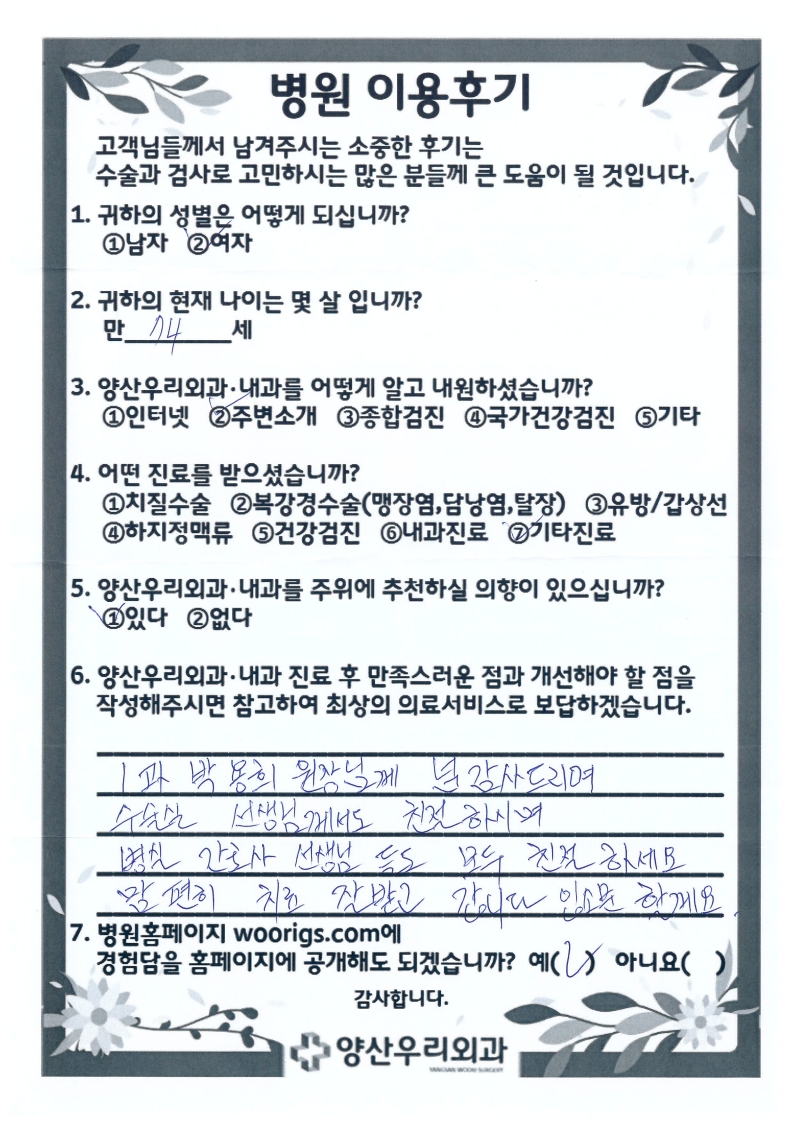 병원 이용후기
고객님들께서 남겨주시는 소중한 후기는
수술과 검사로 고민하시는 많은 분들께 큰 도움이 될 것입니다.
1. 귀하의 성별은 어떻게 되십니까?
①남자 ②여자
2. 귀하의 현재 나이는 몇 살 입니까?
만 74 세
3. 양산우리외과·내과를 어떻게 알고 내원하셨습니까?
①인터넷 ②주변소개 ③종합검진 ④국가건강검진 ⑤기타
4. 어떤 진료를 받으셨습니까?
①치질수술 ②복강경수술(맹장염,담낭염,탈장) ③유방/갑상선
④하지정맥류 ⑤건강검진 ⑥내과진료 ⑦기타진료
5. 양산우리외과·내과를 주위에 추천하실 의향이 있으십니까?
①있다 ②없다
6. 양산우리외과·내과 진료 후 만족스러운 점과 개선해야 할 점을
작성해주시면 참고하여 최상의 의료서비스로 보답하겠습니다.
1과 박 용희 원장님께 감사드리며
수술실 선생님께서도 친절 하시며
병실 간호사 선생님 들도 모두 친절 하세요
맘 편히 치료 잘받고 갑니다 입소문 할게요.
7. 병원홈페이지 woorigs.com에
경험담을 홈페이지에 공개해도 되겠습니까? 예(✓) 아니요( )
감사합니다.
양산우리외과
YANGSAN WOORI SURGERY